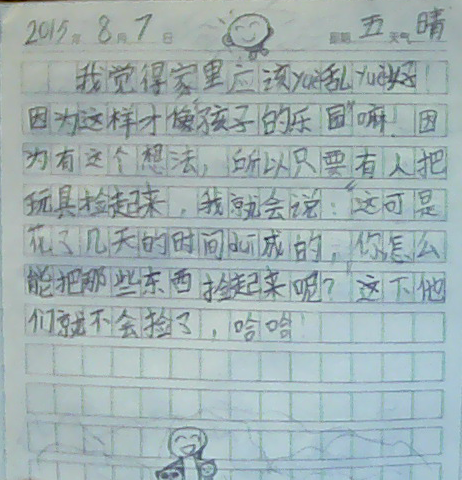 2015年8月7日 星期五 天气晴
我觉得家里应该yuè乱yuè好
因为这样才像“孩子的乐园”嘛！因
为有这个想法，所以只要有人把
玩具捡起来，我就会说：“这可是
花了几天的时间弄成的，你怎么
能把那些东西捡起来呢？”这下他
们就不会捡了，哈哈！